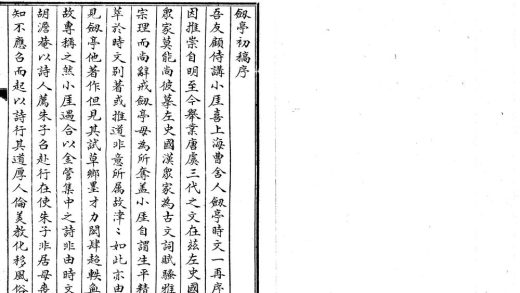 劔亭初稿序
吾友顧侍講小厓喜上海曹舍人劔亭時文一再序
因推崇自明至今舉業唐虞三代之文在玆左史國
衆家莫能尚彼摹左史國漢衆家為古文詞賦騷雅
宗理而尚辭戒劔亭毋為所奪蓋小厓自謂生平精
萃於時文別著或推道非意所属故津〻如此亦由
見劔亭他著作但見其試草鄉墨才力閎肆超軼魚
故専稱之然小厓遇合以金管集中之詩非由時文
胡澹菴以詩人薦朱子召赴行在使朱子非居母喪
知不應召而起以詩行其道厚人倫美教化移風俗